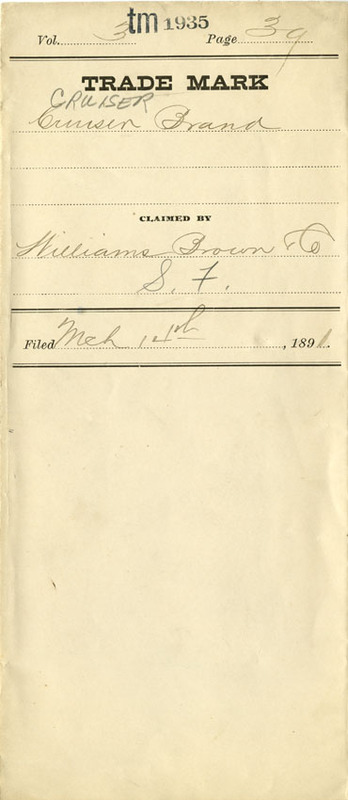 tm 1935
Vol. 3 Page 39
TRADE MARK
CRUISER
Cruiser Brand
CLAIMED BY
Williams Brown & Co
S. F.
Filed Mch 14th, 1891.